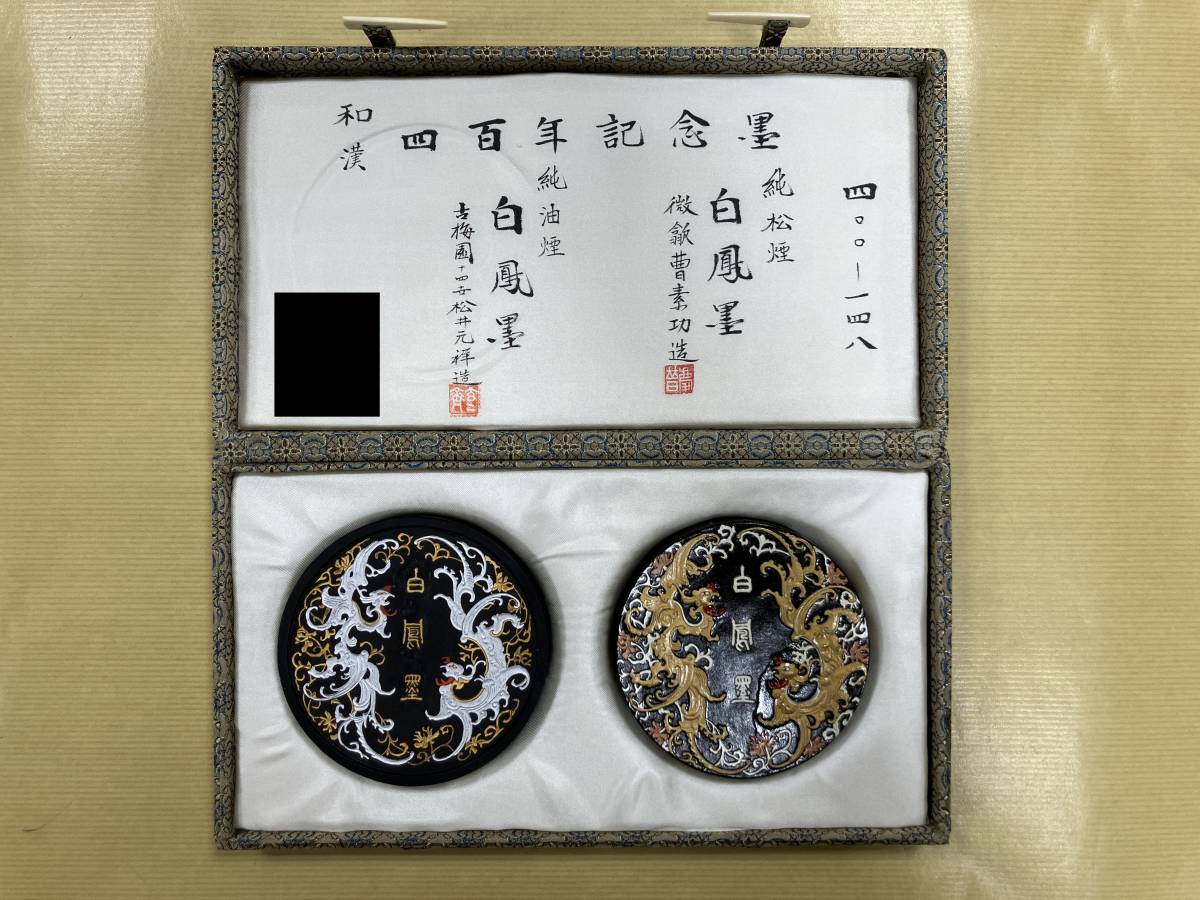 和漢
四百年記念墨
四〇〇―一四八
純松煙
白鳳墨
微歙曹素功造
純油煙
白鳳墨
古梅園十四世松井元祥造
白鳳墨
白鳳墨